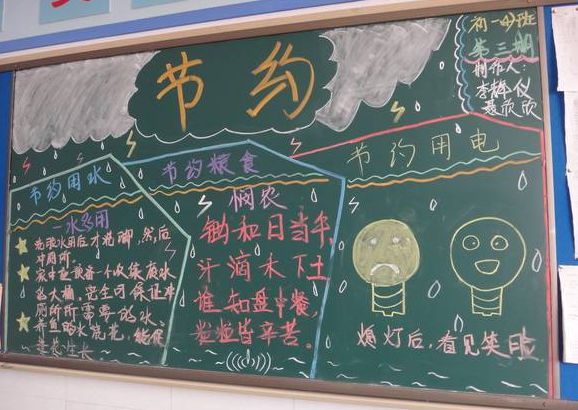 节约
初一四班
第三期
制作人:
李辉仪
聂欣欣
节约用水
一水多用
洗脸水用后才洗脚,然后
冲厕所。
家中应预备一个收集废水
的大桶,完全可保证冲
厕所所需要的水。
养鱼的水浇花,能促
进花生长
节约粮食
悯农
锄和日当午
汗滴禾下土
谁知盘中餐,
粒粒皆辛苦。
节约用电
熄灯后,看见笑脸